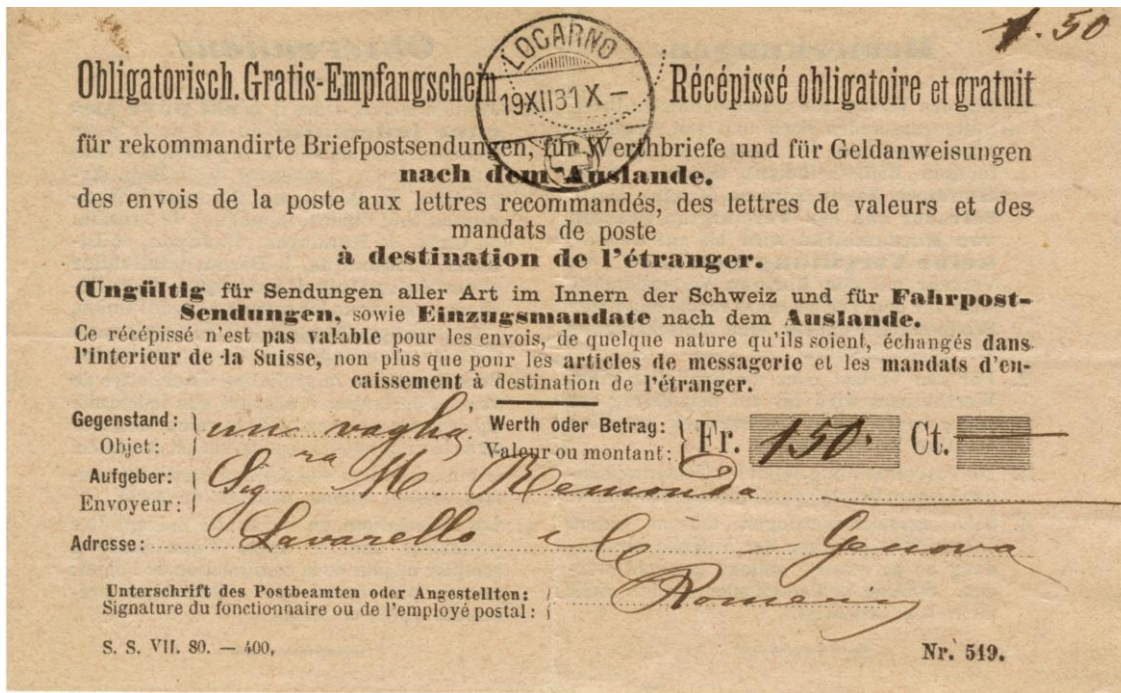 1.50
LOCARNO
19XII81X–
Obligatorisch. Gratis-Empfangschein Récépissé obligatoire et gratuit
für rekommandirte Briefpostsendungen, für Werthbriefe und für Geldanweisungen
nach dem Auslande.
des envois de la poste aux lettres recommandés, des lettres de valeurs et des
mandats de poste
à destination de l'étranger.
(Ungültig für Sendungen aller Art im Innern der Schweiz und für Fahrpost-
Sendungen, sowie Einzugsmandate nach dem Auslande.
Ce récépissé n'est pas valable pour les envois, de quelque nature qu'ils soient, échangés dans
l'interieur de la Suisse, non plus que pour les articles de messagerie et les mandats d'en-
caissement à destination de l'étranger.
Gegenstand: un vaglia Werth oder Betrag: Fr. 150. Ct. —
Objet: Valeur ou montant:
Aufgeber: Sig ra M. Remonda
Envoyeur:
Adresse: Lavarello Genova
Unterschrift des Postbeamten oder Angestellten:
Signature du fonctionnaire ou de l'employé postal:
S. S. VII. 80. — 400, Nr. 519.